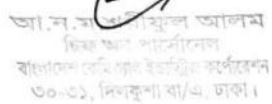 আ.ন.ম শরীফুল আলম
চিফ অব পার্সোনেল
বাংলাদেশ কেমিক্যাল ইন্ডাস্ট্রিজ কর্পোরেশন
৩০-৩১, দিলকুশা বা/এ, ঢাকা।